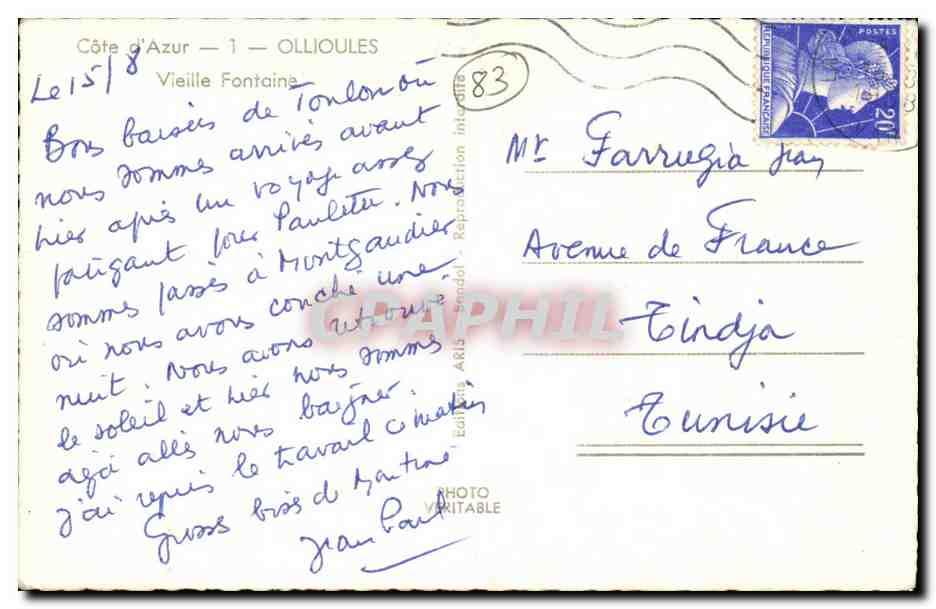 Côte d'Azur — 1 — OLLIOULES
Vieille Fontaine
Le 15/8
Bons baisers de Toulon où
nous sommes arrivés avant
hier après un voyage assez
fatigant pour Paulette. Nous
sommes passés à Montgaudier
où nous avons couché une
nuit. Nous avons retrouvé
le soleil et hier nous sommes
déjà allés nous baigner.
J'ai repris le travail ce matin
Grosses bises de
Jean Paul
83
Editions ARIS Bandol - Reproduction interdite
PHOTO
VERITABLE
POSTES
REPUBLIQUE FRANÇAISE
20F
Mr Farrugia Jean
Avenue de France
Tindja
Tunisie
CPAPHIL